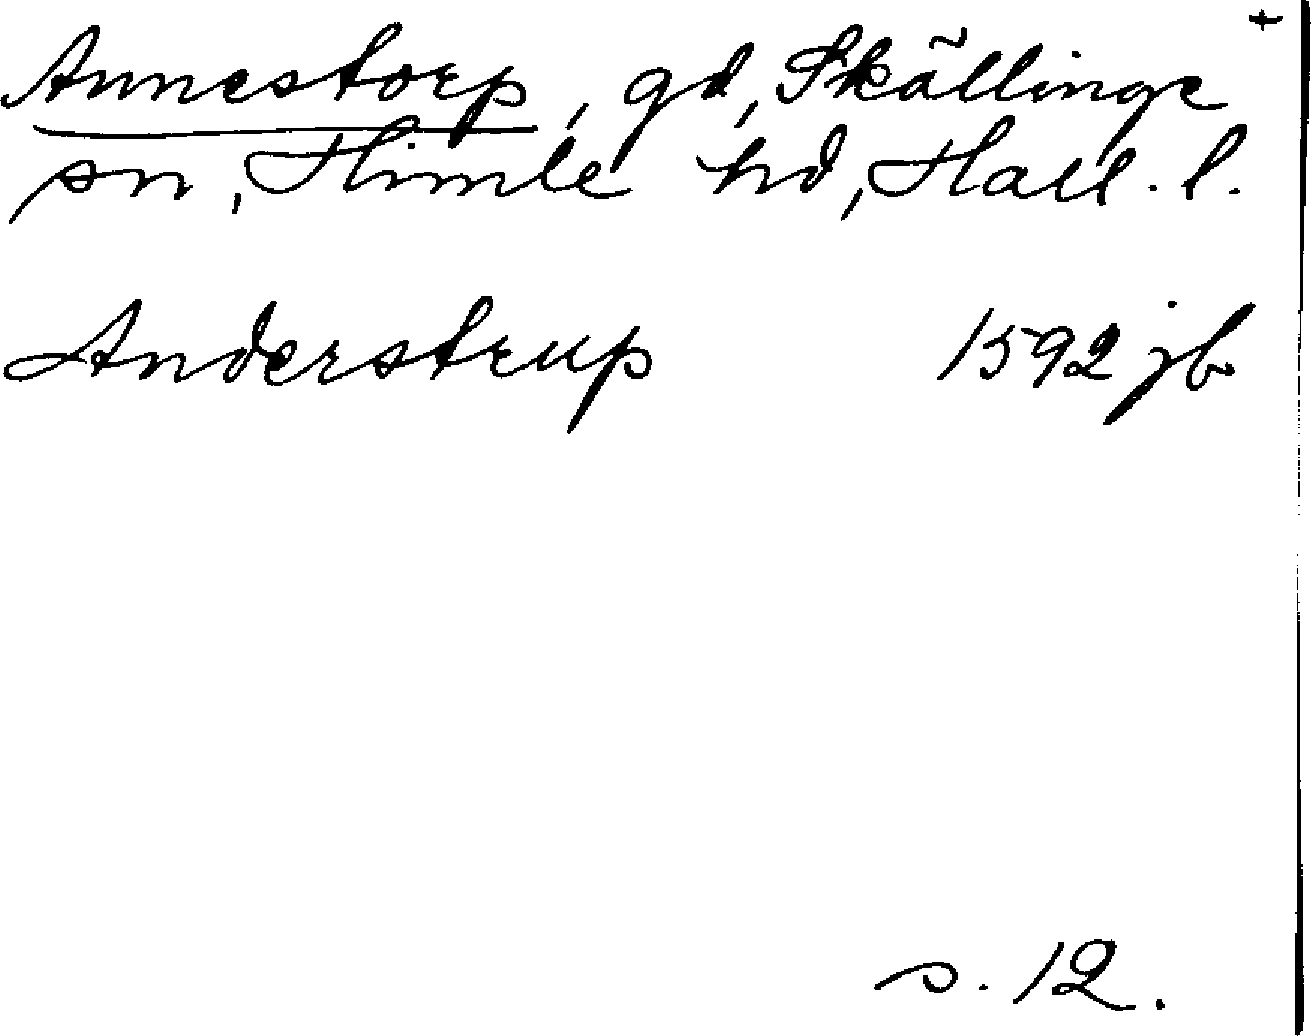 +
Annestorp, gd, Skällinge
sn, Himle hd, Hall. l.
Anderstrup 1592 jb.
s. 12.